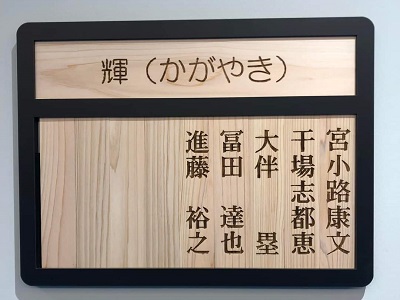 輝（かがやき）
宮小路康文
干場志都恵
大伴 塁
冨田 達也
進藤 裕之